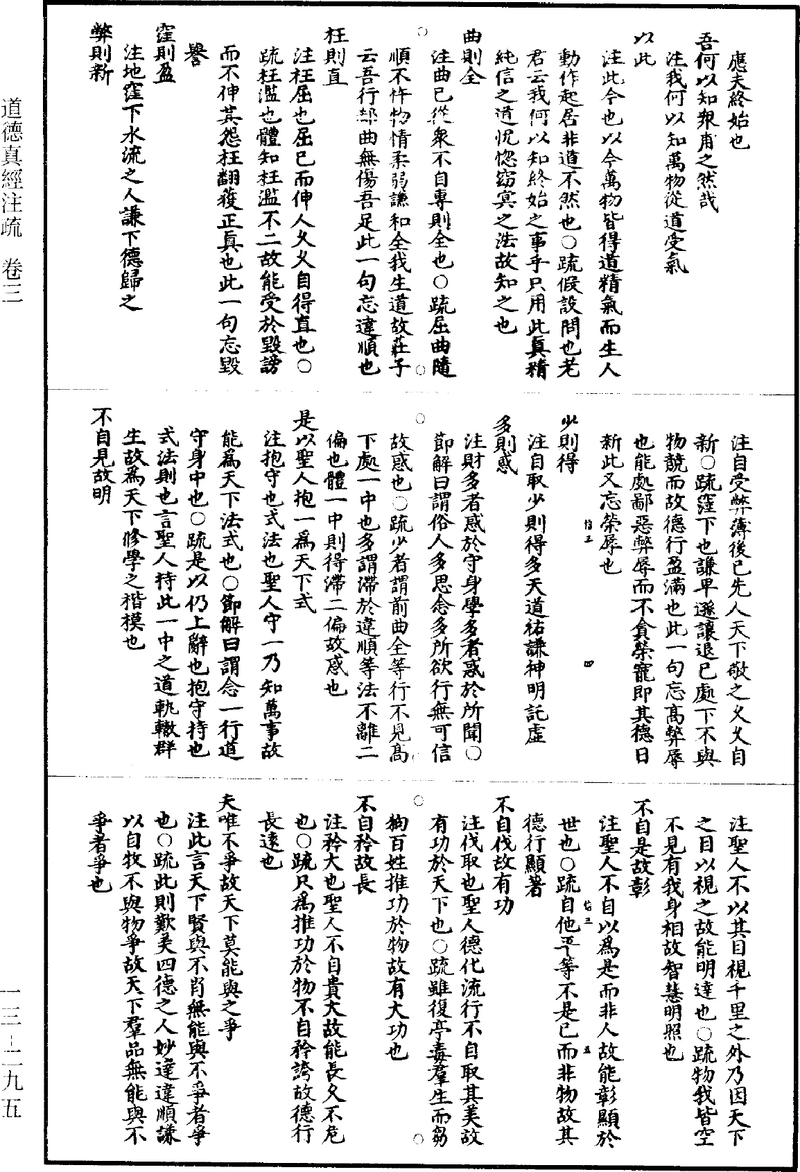 應夫終始也
吾何以知衆甫之然哉
注我何以知萬物從道受氣
以此
注此今也以今萬物皆得道精氣而生人
動作起居非道不然也○疏假設問也老
君云我何以知終始之事乎只用此真精
純信之道恍惚窈冥之法故知之也
曲則全
注曲已從衆不自專則全也○疏屈曲隨
順不忤物情柔弱謙和全我生道故莊子
云吾行郤曲無傷吾足此一句忘違順也
枉則直
注枉屈也屈已而伸人久久自得直也○
疏枉濫也體知枉濫不二故能受於毀謗
而不伸其怨枉翻獲正真也此一句忘毀
譽
窪則盈
注地窪下水流之人謙下德歸之
弊則新
注自受弊薄後已先人天下敬之久久自
新○疏窪下也謙卑遜讓退已處下不與
物競而故德行盈滿也此一句忘高弊辱
也能處鄙惡弊辱而不貪榮寵即其德日
新此又忘榮辱也
少則得
注自取少則得多天道祐謙神明託虛
多則惑
注財多者惑於守身學多者惑於所聞○
節解曰謂俗人多思念多所欲行無可信
故惑也○疏少者謂前曲全等行不見高
下處一中也多謂滯於違順等法不離二
偏也體一中則得滯二偏故惑也
是以聖人抱一為天下式
注抱守也式法也聖人守一乃知萬事故
能為天下法式也○節解曰謂念一行道
守身中也○疏是以仍上辭也抱守持也
式法則也言聖人持此一中之道軌轍群
生故為天下修學之楷模也
不自見故明
注聖人不以其目視千里之外乃因天下
之目以視之故能明達也○疏物我皆空
不見有我身相故智慧明照也
不自是故彰
注聖人不自以為是而非人故能彰顯於
世也○疏自他平等不是已而非物故其
德行顯著
不自伐故有功
注伐取也聖人德化流行不自取其美故
有功於天下也○疏雖復亭毒羣生而芻
狗百姓推功於物故有大功也
不自矜故長
注矜大也聖人不自貴大故能長久不危
也○疏只為推功於物不自矜誇故德行
長遠也
夫唯不爭故天下莫能與之爭
注此言天下賢與不肖無能與不爭者爭
也○疏此則歎美四德之人妙達違順謙
以自牧不與物爭故天下羣品無能與不
爭者爭也
道德真經注疏 卷三
一三-二九五